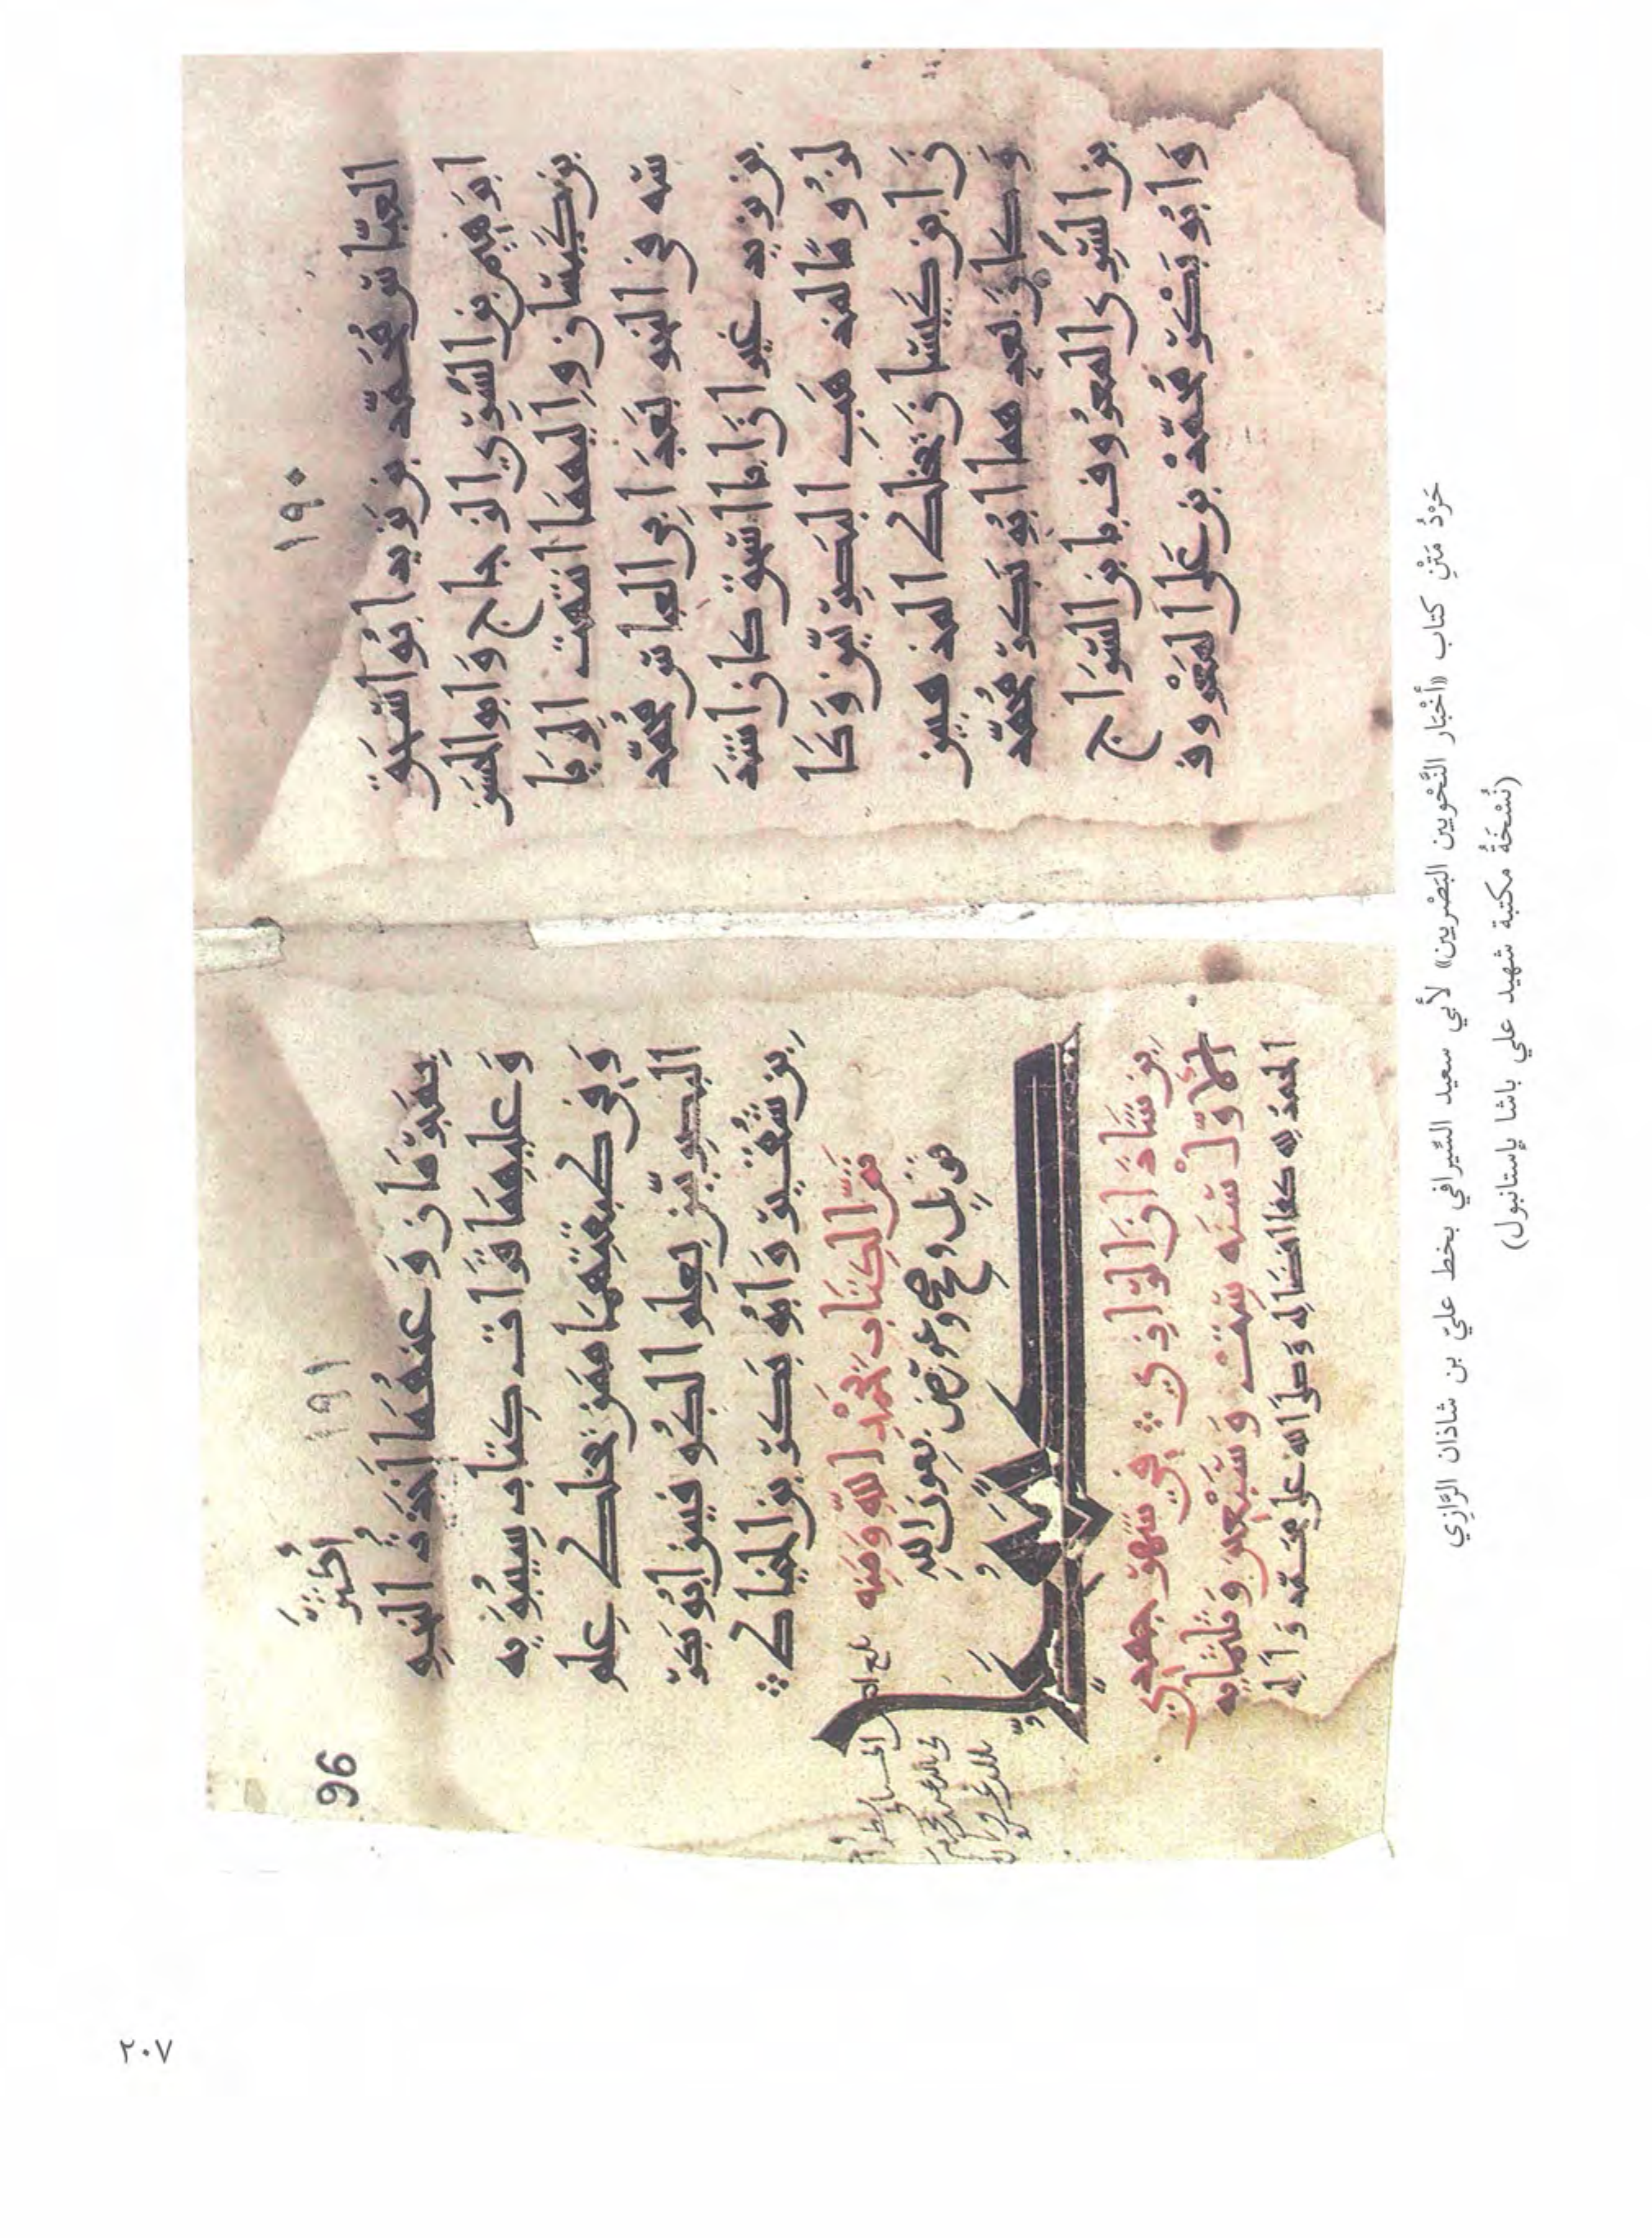 ١٩٠
العبّاس محمّد بن يزيد ابو اسحق
ابرهيم بن السّري الزجاج وابو الحسن
بن كيسان واليهما انتهت الريا
سة في النحو بعد ابي العباس محمد
بن يزيد غير ان ابا اسحق كان اشد
لزوما لمذهب البصريين وكا
ن ابن كيسان يخلط المذهبين
وكان بعدهما ابو بكر محمد
بن السّري المعروف بابن السّراج
وابو بكر محمد بن علي المعروف
١٩١
96
بمبرمان وعنهما اخذت النحو
وعليهما قرات كتاب سيبويه
وفي طبقتهما ممن خلط علم
البصريين بعلم الكوفيين ابو بكر
بن شقير وابو بكر بن الخياط
تمّ الكتاب بحمد الله ومنه
قوبل وصحح وعورض بعون الله
بن شاذان الرازي في شهر جمدي
الاول سنه ست وسبعين وثلثمايه
الحمد لله كفا افضاله وصلى الله على محمد واله
حَرْدُ مَتْنِ كتاب «أخْبَار النَّحْويين البَصْريين» لأبي سعيد السِّيرافي بخط عليّ بن شاذان الرَّازي
(نُسْخَةُ مكتبة شهيد علي باشا بإستانبول)
٢٠٧